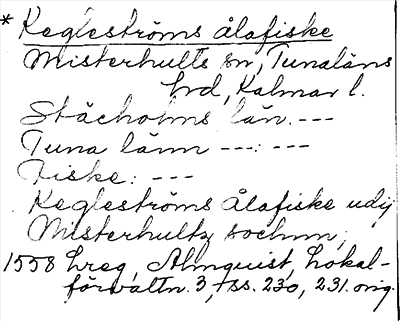 * Kegleströms ålafiske
Misterhults sn, Tunaläns
hrd, Kalmar l.
Stächolms län. ---
Tuna länn ---: ---
Fiske: ---
Kegleströms Ålafiske udij
Misterhultz sochnn,
1558 hreg, Almquist, Lokal-
förvaltn. 3, ss. 230, 231. orig.